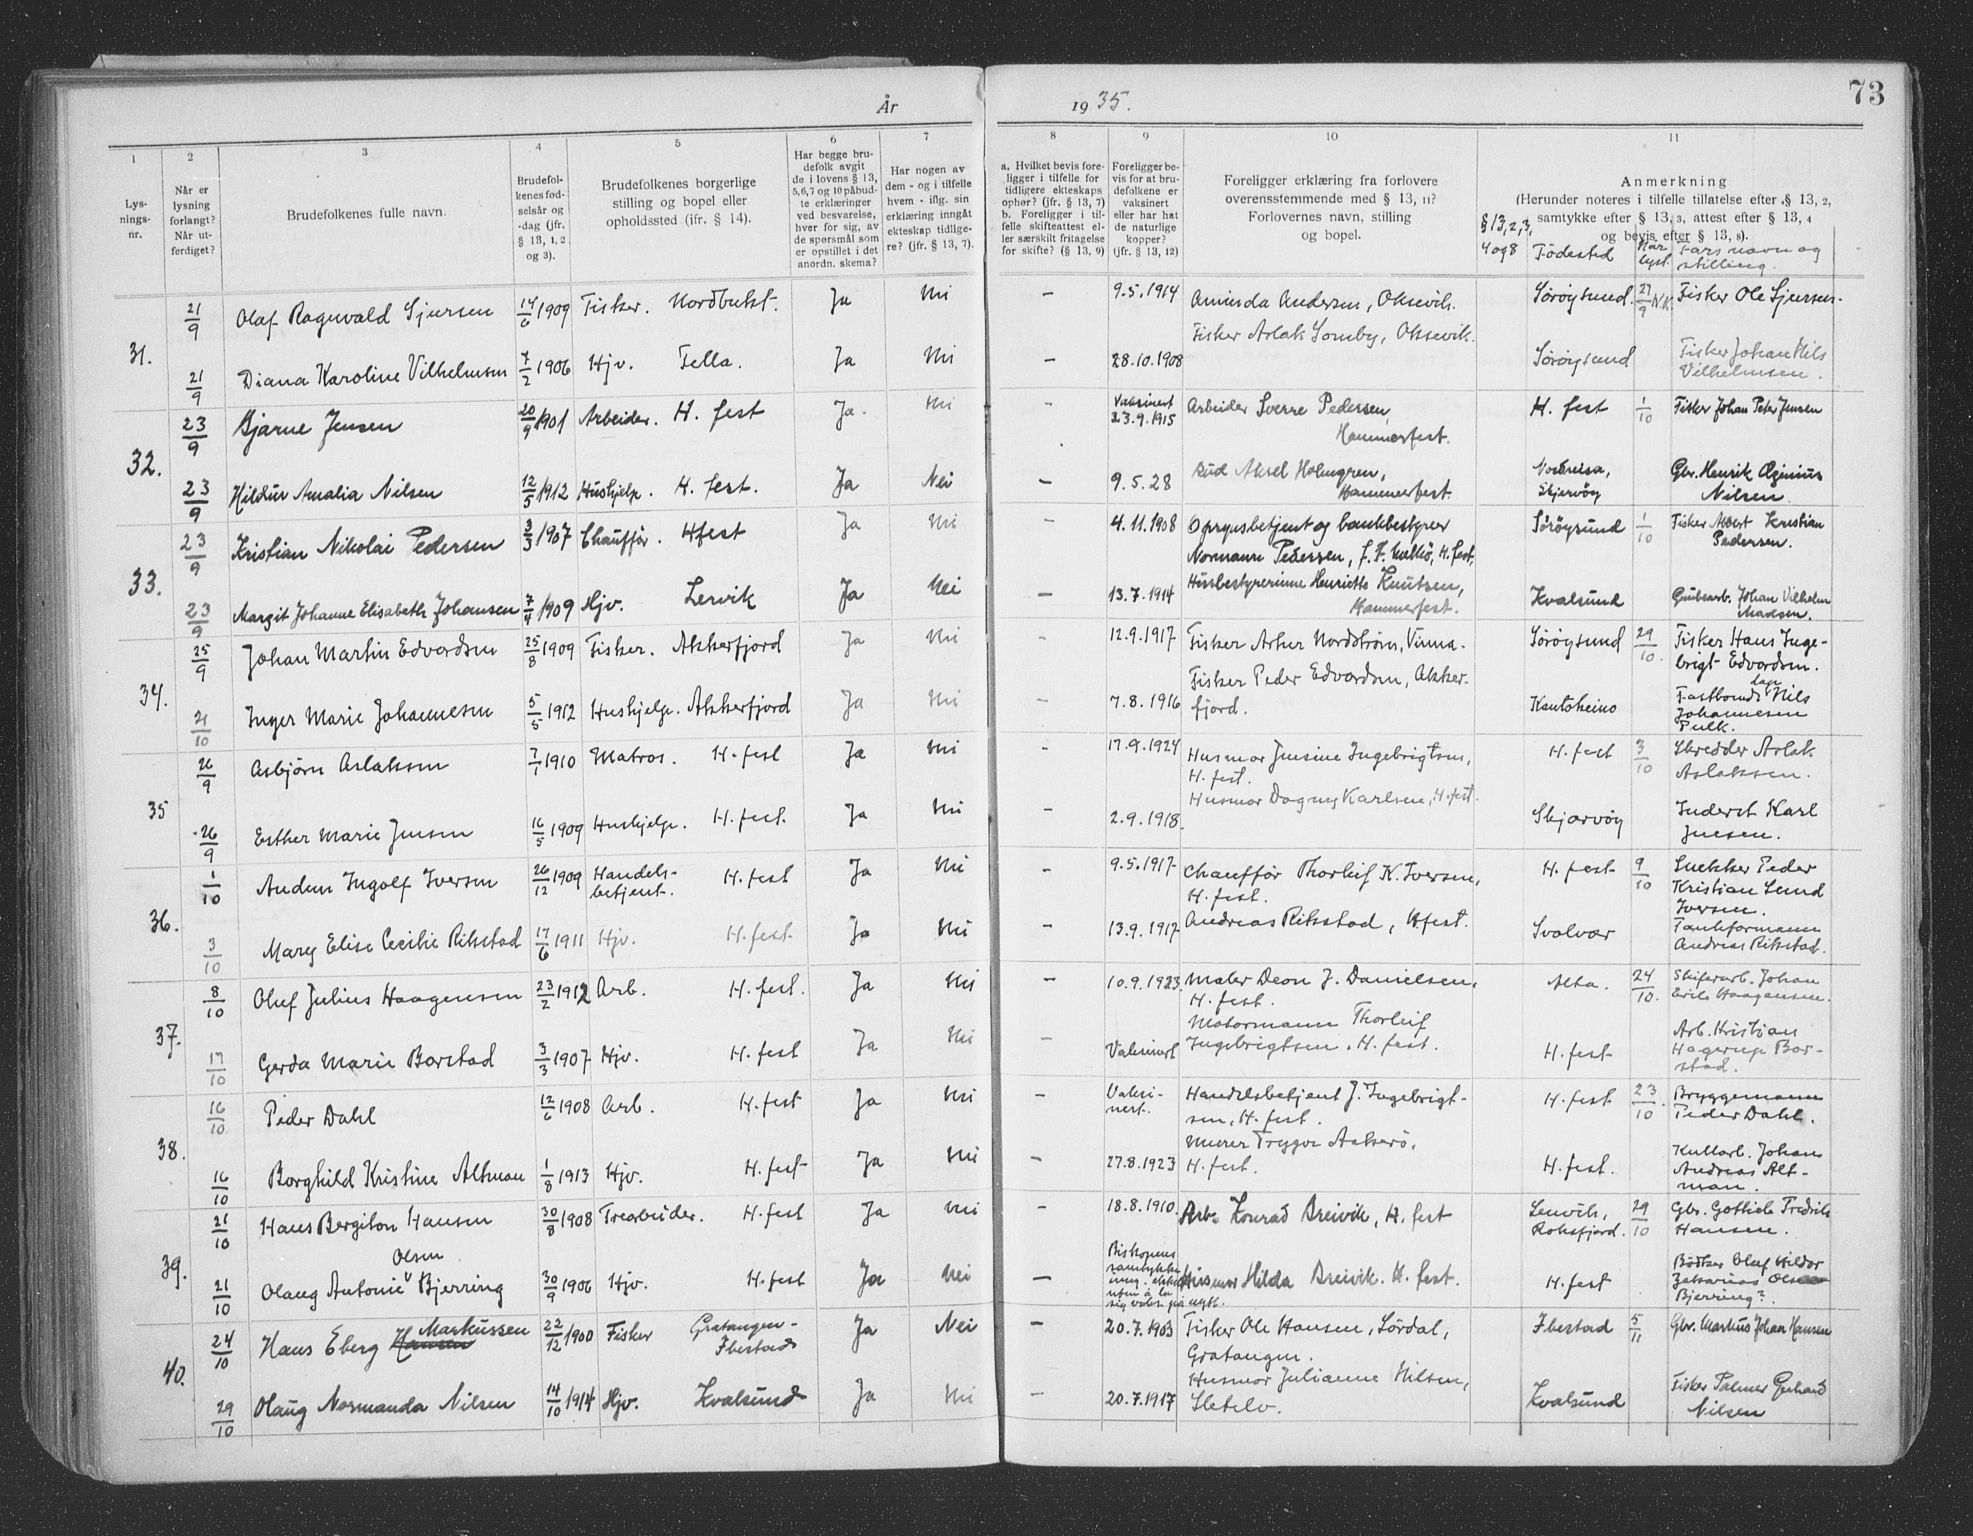 År 1935.
73
1 2 3 4 5 6 7 8 9 10 11
Lys-
nings-
nr.
Når er
lysning
forlangt?
Når ut-
ferdiget?
Brudefolkenes fulle navn.
Brudefol-
kenes fød-
selsår og
-dag (jfr.
§ 13, 1, 2
og 3).
Brudefolkenes borgerlige
stilling og bopel eller
opholdssted (ifr. § 14).
Har begge bru-
defolk avgit
de i lovens § 13,
5,6,7 og 10 påbud-
te erklæringer
ved besvarelse,
hver for sig, av
de spørsmål som
er opstillet i det
anordn. skema?
Har nogen av
dem - og i tilfelle
hvem - iflg. sin
erklæring inngått
ekteskap tidlige-
re? (jfr. § 13, 7).
a. Hvilket bevis fore-
ligger i tilfelle for
tidligere ekteskaps
ophør? (jfr. § 13, 7)
b. Foreligger i til-
felle skifteattest el-
ler særskilt fritagelse
for skifte? (§ 13, 9)
Foreligger be-
vis for at bru-
defolkene er
vaksinert
eller har hat
de naturlige
kopper?
(jfr. § 13, 12)
Foreligger erklæring fra forlovere
overensstemmende med § 13, 11?
Forlovernes navn, stilling
og bopel.
Anmerkning
(Herunder noteres i tilfelle tillatelse efter § 13, 2,
samtykke efter § 13, 3, attest efter § 13, 4
og bevis efter § 13, 8).
§ 13, 2, 3,
4 og 8 Födested Når lyst. Fars navn og
stilling.
31.
21/9 Olaf Ragnvald Sjursen 14/6 1909 Fisker. Nordbukt. Ja Nei — 9.5.1914 Aminda Andersen, Oksevik. Sörøysund. 27/9 N.K. Fisker Ole Sjursen.
Fisker Aslak Somby, Oksevik.
21/9 Diana Karoline Vilhelmsen 7/2 1906 Hjv. Fella. Ja Nei — 28.10.1908 Sörøysund Fisker Johan Nils
Vilhelmsen.
32.
23/9 Bjarne Jensen 20/9 1901 Arbeider. H. fest Ja. Nei - Vaksinert
23.9.1915 Arbeider Sverre Pedersen,
Hammerfest. H. fest 1/10 Fisker Johan Peter Jensen
23/9 Hildur Amalia Nilsen 12/5 1912 Hushjelp. H. fest. Ja Nei — 9.5.28 Bud Aksel Holmgren,
Hammerfest. Nordreisa,
Skjervöy Gbr. Henrik
Nilsen.
33.
23/9 Kristian Nikolai Pedersen 3/3 1907 Chauffør. Hfest Ja Nei - 4.11.1908 Opsynsbetjent og bankbestyrer
Normann Pedersen, H. fest, Sörøysund 1/10 Fisker Albert Kristian
Pedersen.
23/9 Margit Johanne Elisabeth Johansen 7/4 1909 Hjv. Lervik Ja Nei — 13.7.1914 Husbestyrerinne Henriette Knutsen,
Hammerfest. Kvalsund Grubearb. Johan Vilhelm
Madsen.
34.
25/9 Johan Martin Edvardsen 25/8 1909 Fisker. Akkerfjord Ja Nei - 12.9.1917 Fisker Artur Nordström, Vinna. Sörøysund 29/10. Fisker Hans Inge-
brigt Edvardsen.
Fisker Peder Edvardsen, Akker-
fjord.
21/10 Inger Marie Johannesen 5/5 1912 Hushjelp. Akkerfjord Ja Nei — 7.8.1916 Kautokeino Fastboende lapp Nils
Johannesen
Pulk.
35
26/9 Asbjörn Aslaksen 7/1 1910 Matros. H. fest Ja Nei - 17.9.1924 Husmor Jensine Ingebrigtsen,
H. fest. H. fest 3/10 Skredder Aslak
Aslaksen.
Husmor Dagny Karlsen, H. fest.
26/9 Esther Marie Jensen 16/5 1909 Hushjelp. H. fest. Ja Nei — 2.9.1918. Skjervöy Inderst Karl
Jensen.
36.
1/10 Audun Ingolf Iversen 26/12 1909 Handels-
betjent. H. fest Ja Nei - 9.5.1917 Chauffør Thorleif N. Iversen,
H. fest. H. fest 9/10 Snekker Peder
Kristian Lund
Iversen.
3/10 Mary Elise Cecilie Rikstad 17/6 1911 Hjv. H. fest Ja Nei — 13.9.1917 Andreas Rikstad, Hfest. Svolvær Tankformann
Andreas Rikstad.
37.
8/10 Oluf Julius Haagensen 23/2 1912 Arb. H. fest. Ja Nei — 10.9.1923. Maler Deon J. Danielsen,
H. fest. Alta. 24/10. Skiferarb. Johan
Erik Haagensen.
17/10 Gerda Marie Borstad 3/3 1907 Hjv. H. fest Ja Nei — Vaksinert Motormann Thorleif
Ingebrigtsen, H. fest. H. fest Arb. Kristian
Hagerup Bor-
stad.
38.
16/10 Peder Dahl 12/6 1908 Arb. H. fest Ja Nei — Vaksi-
nert. Handelsbetjent J. Ingebrigt-
sen, H. fest. H. fest 23/10. Bryggemann
Peder Dahl.
16/10 Borghild Kristine Altman 1/8 1913 Hjv. H. fest Ja Nei — 27.8.1923 Murer Trygve Askerö,
H. fest. H. fest. Kullarb. Johan
Andreas Alt-
man.
39.
21/10 Hans Bergiton Hansen 30/8 1908 Trearbeider. H. fest Ja Nei — 18.8.1910. Arb. Konrad Breivik, H. fest Lenvik,
Roksfjord. 29/10 Gbr. Gottlieb Fredrik
Hansen.
21/10 Olaug Antonie Olsen Bjerring 30/9 1906 Hjv. H. fest Ja Nei — Biskopens
samtykke
uten å la
sig vaks. på nytt. Husmor Hilda Breivik. H. fest. H. fest Bödker Oluf Hildor
Zakarias Olsen
Bjerring?.
40.
24/10 Hans Eberg Hansen Markussen 22/12 1900 Fisker Gratangen-
Ibestad Ja Nei — 20.7.1903 Fisker Ole Hansen, Sördal,
Gratangen. Ibestad 5/11 Gbr. Markus Johan Hansen
29/10 Olaug Normanda Nilsen 14/10 1914 Hjv. Kvalsund Ja Nei — 20.7.1917 Husmor Julianne Nilsen,
Kvalsund Fisker Palmer Gerhard
Nilsen